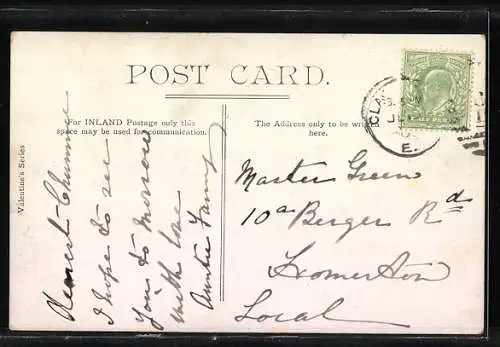 POST CARD.
For INLAND Postage only this
space may be used for communication.
The Address only to be
here.
Valentine's Series
Dearest Chummie
I hope to see
you to morrow
with love
Auntie Fanny
Master Green
10a Berger Rd
Homerton
Local
E.